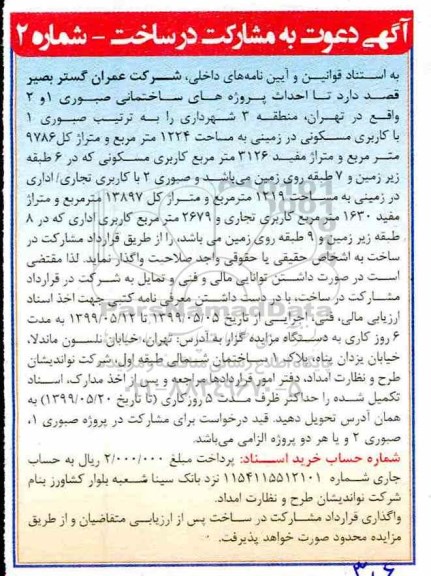 آگهی دعوت به مشارکت در ساخت - شماره ۲
به استناد قوانین و آیین نامه‌های داخلی، شرکت عمران گستر بصیر
قصد دارد تا احداث پروژه های ساختمانی صبوری ۱ و ۲
واقع در تهران، منطقه ۳ شهرداری را به ترتیب صبوری ۱
با کاربری مسکونی در زمینی به مساحت ۱۲۲۴ متر مربع و متراژ کل ۹۷۸۶
متر مربع و متراژ مفید ۳۱۲۶ متر مربع کاربری مسکونی که در ۶ طبقه
زیر زمین و ۷ طبقه روی زمین می‌باشد و صبوری ۲ با کاربری تجاری/ اداری
در زمینی به مساحت ۱۳۱۰ مترمربع و متراژ کل ۱۳۸۹۷ مترمربع و متراژ
مفید ۱۶۳۰ متر مربع کاربری تجاری و ۲۶۷۹ متر مربع کاربری اداری که در ۸
طبقه زیر زمین و ۹ طبقه روی زمین می باشد، را از طریق قرارداد مشارکت در
ساخت به اشخاص حقیقی یا حقوقی واجد صلاحیت واگذار نماید. لذا مقتضی
است در صورت داشتن توانایی مالی و فنی و تمایل به شرکت در قرارداد
مشارکت در ساخت، با در دست داشتن معرفی نامه کتبی جهت اخذ اسناد
ارزیابی مالی، فنی، اجرایی از تاریخ ۱۳۹۹/۰۵/۰۵ تا ۱۳۹۹/۰۵/۱۲ به مدت
۶ روز کاری به دستگاه مزایده گزار به آدرس: تهران، خیابان نلسون ماندلا،
خیابان یزدان پناه، پلاک ۱ ساختمان شمالی طبقه اول، شرکت نواندیشان
طرح و نظارت امداد، دفتر امور قراردادها مراجعه و پس از اخذ مدارک، اسناد
تکمیل شده را حداکثر ظرف مدت ۵ روزکاری (تا تاریخ ۱۳۹۹/۰۵/۲۰) به
همان آدرس تحویل دهید. قید درخواست برای مشارکت در پروژه صبوری ۱،
صبوری ۲ و یا هر دو پروژه الزامی می‌باشد.
شماره حساب خرید اسناد: پرداخت مبلغ ۲/۰۰۰/۰۰۰ ریال به حساب
جاری شماره ۱۱۵۴۱۱۵۵۱۲۱۰۱ نزد بانک سینا شعبه بلوار کشاورز بنام
شرکت نواندیشان طرح و نظارت امداد.
واگذاری قرارداد مشارکت در ساخت پس از ارزیابی متقاضیان و از طریق
مزایده محدود صورت خواهد پذیرفت.
۳۰۶